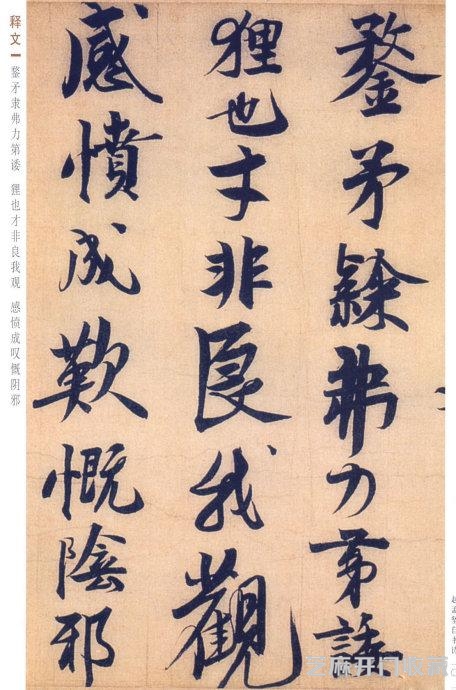 鍪矛隸弗力苐諉
狸也才非良我觀
感憤成歎慨陰邪
释文
鍪矛隶弗力第诿 狸也才非良我观 感愤成叹慨阴邪
芝麻开门收藏